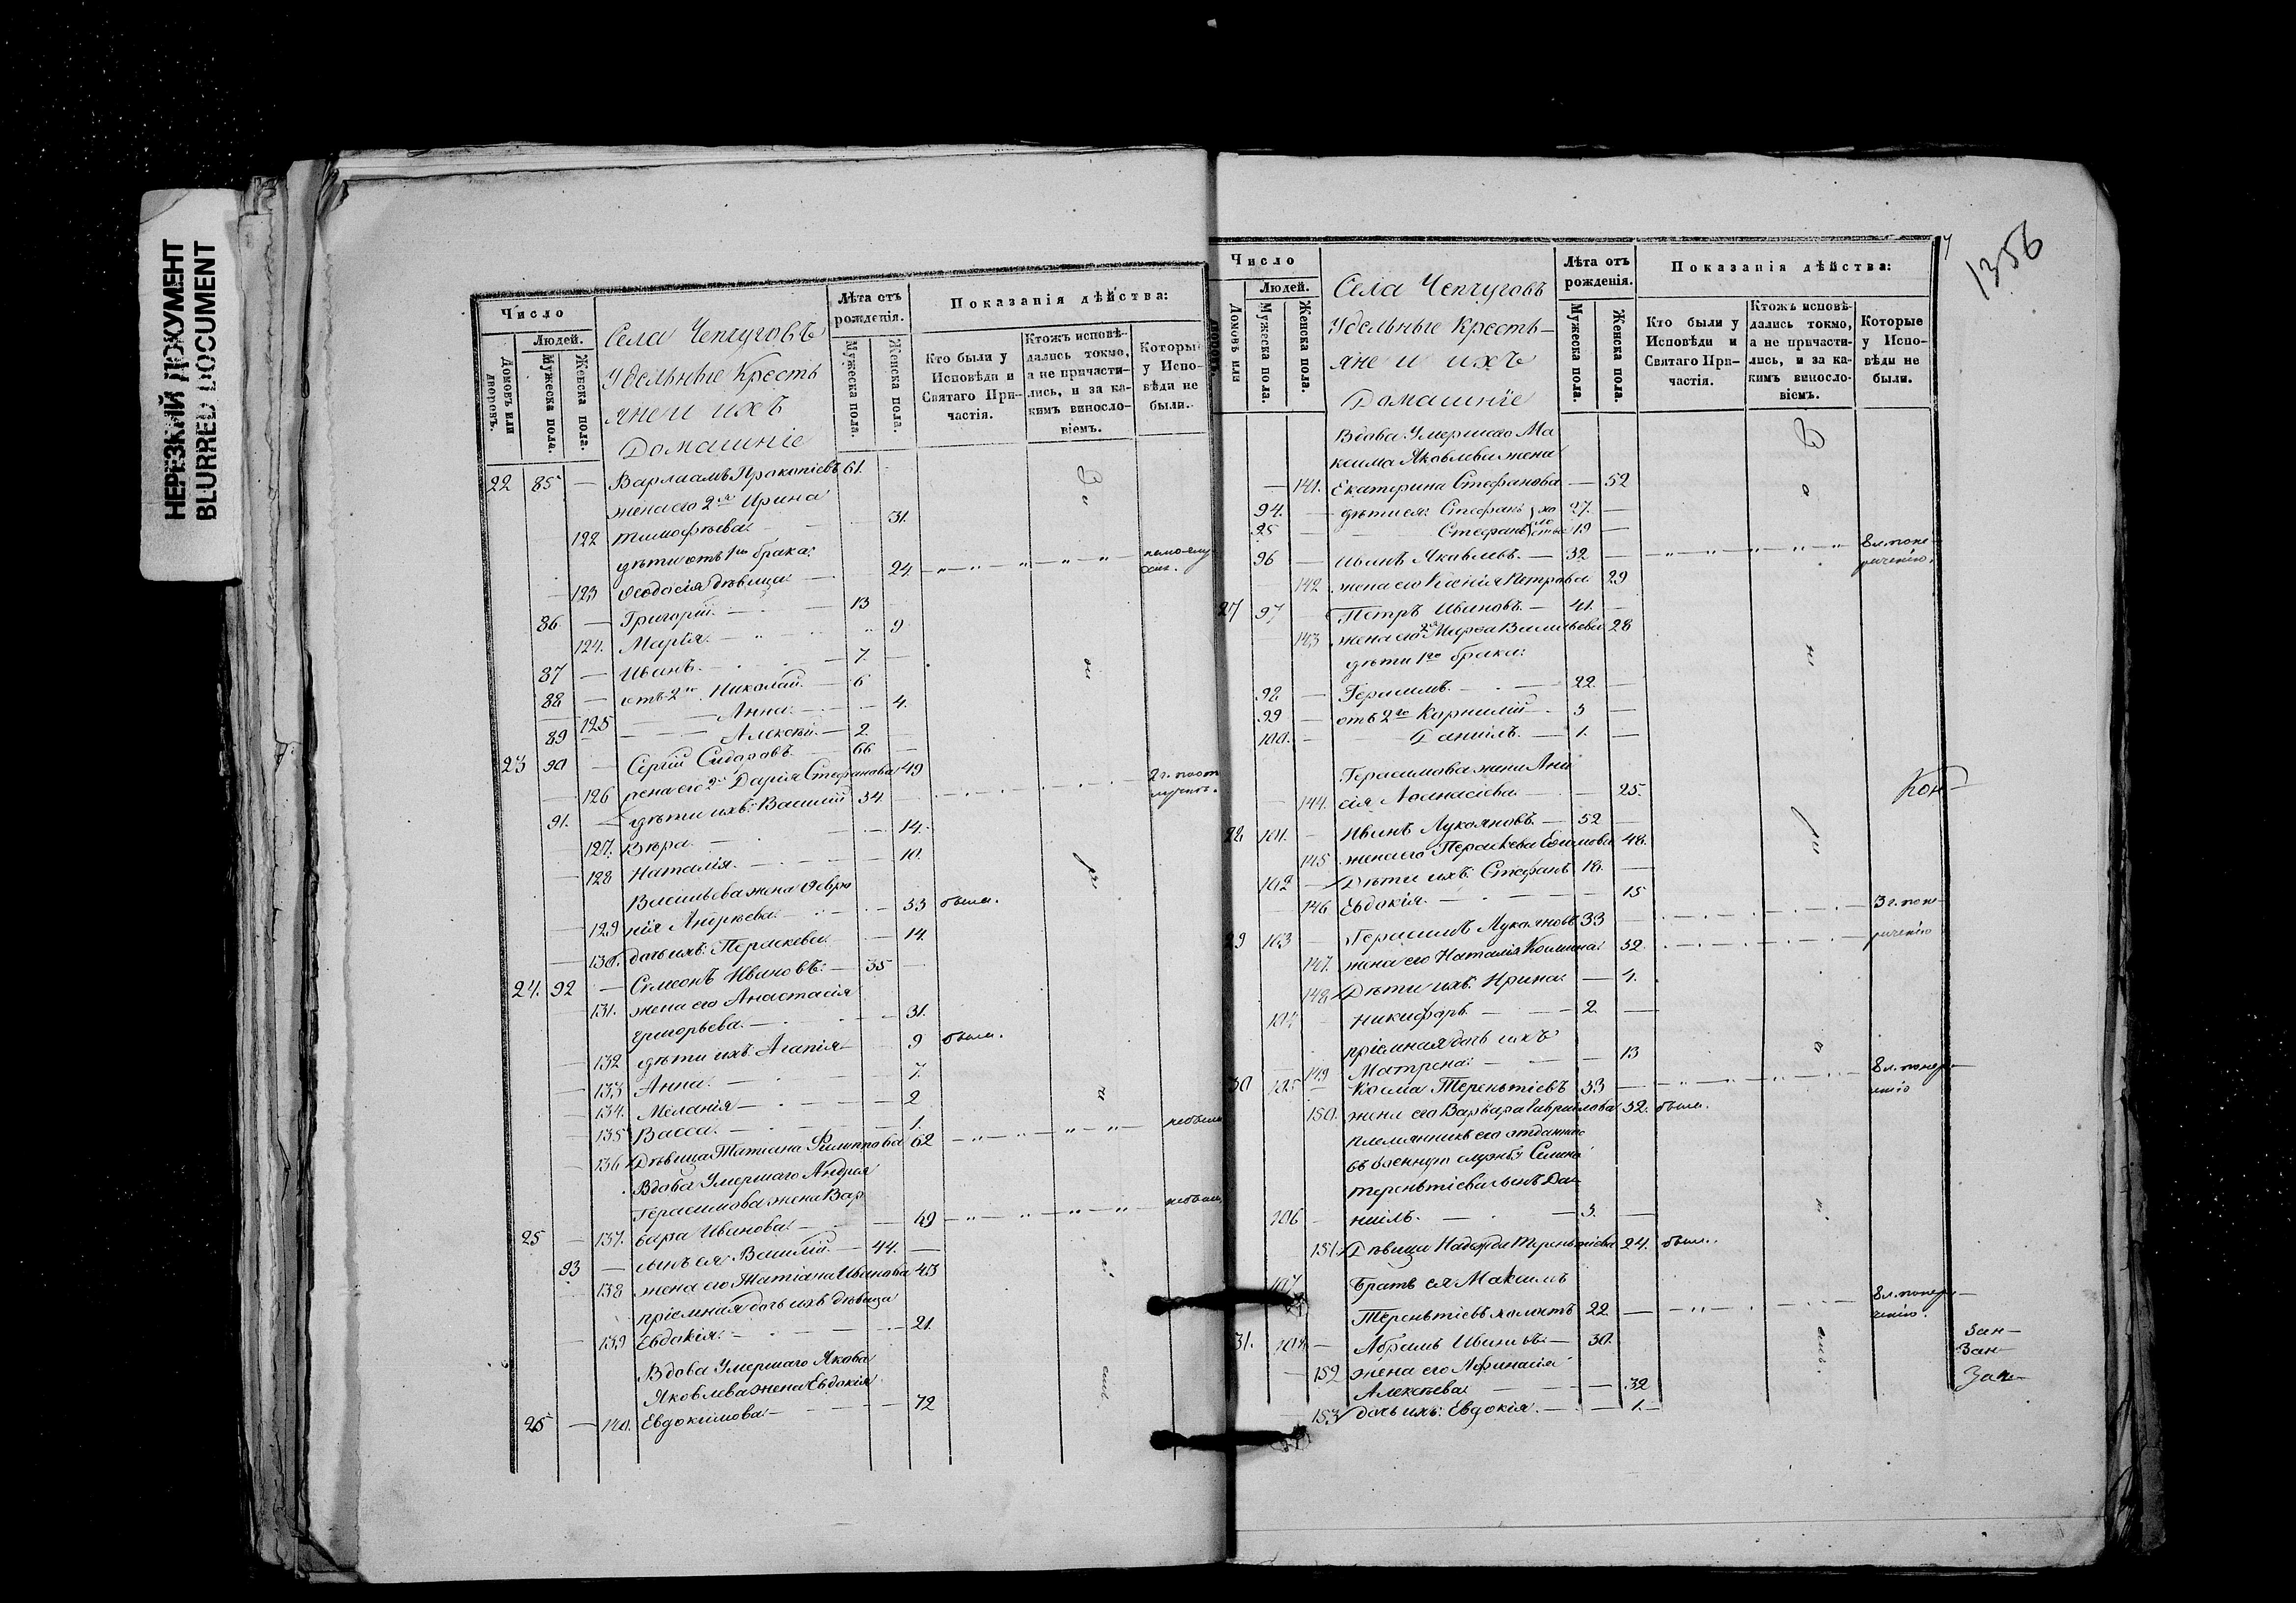 НЕРЕЗКИЙ ДОКУМЕНТ
BLURRED DOCUMENT
1356
Число
Людей.
Домовъ или дворовъ.
Мужеска пола.
Женска пола.
Села Чепчуговъ
Удельные Кресть
яне и ихъ
Домашніе
Лѣта отъ рожденія.
Мужеска пола.
Женска пола.
Показанія дѣйства:
Кто были у Исповѣди и Святаго Причастія.
Ктожъ исповѣдались токмо, а не причастились, и за какимъ винословіемъ.
Которые у Исповѣди не были.
22 85 — Варлаамъ Прокопіевъ 61.
жена его 2я Ирина
122 Тимофѣева. — 31.
дѣти отъ 1го брака:
123 Ѳеодосія дѣвица — 24.
86 — Григорій. — 13
124. Марія. — 9
87 — Иванъ. — 7. —
88 — отъ 2го Николай. — 6
125 — Анна. — 4.
89 — Алексѣй. — 2.
23 90 — Сергій Сидоровъ. 66 —
126 жена его 2я Дарія Стефанова 49
91. дѣти ихъ: Василій 34. —
127. Вѣра. — 14.
128 Наталія. — 10.
Васильева жена Февро
129 нія Андреева. — 33 была.
130. дочь ихъ: Пераскева — 14.
24. 92 — Симеонъ Ивановъ: — 35 —
131. жена его Анастасія
Григорьева. — 31.
132 дѣти ихъ: Агапія — 9 была.
133 Анна. — 7.
134. Меланія — 2
135 Васса. — 1.
136 Дѣвица Татіана Филиппова 62 небыла
Вдова Умершаго Андрея
Герасимова жена Вар
25 — 137. вара Иванова: — 49 небыла
93 — сынъ ея Василій. — 44. —
138 жена его Татіана Иванова 43
пріемная дочь ихъ дѣвица
139 Евдокія: — 21.
Вдова Умершаго Якова
Яковлева жена Евдокія
26 — 140. Евдокимова: — 72
Число
Людей.
Домовъ или дворовъ.
Мужеска пола.
Женска пола.
Села Чепчуговъ
Удельные Кресть-
яне и ихъ
Домашніе
Лѣта отъ рожденія.
Мужеска пола.
Женска пола.
Показанія дѣйства:
Кто были у Исповѣди и Святаго Причастія.
Ктожъ исповѣдались токмо, а не причастились, и за какимъ винословіемъ.
Которые у Исповѣди не были.
Вдова Умершаго Ма
ксима Яковлева жена
— 141. Екатерина Стефанова — 52
94. — дѣти ея: Стефанъ 27. —
95 — Стефанъ 19 —
96 — Иванъ Яковлевъ. — 32 —
142 жена его Ксенія Петрова 29
27 97 — Петръ Ивановъ. — 41. —
143 жена его 2я Марѳа Васильева 28
дѣти 1го брака:
98 — Герасимъ. — 22. —
99 — отъ 2го Корнилій — 3 —
100. — Даніилъ. — 1. —
Герасимова жена Ани
144. сія Аѳанасіева. — 25.
28 101. — Иванъ Лукояновъ. — 52 —
145 жена его Пераскева Ефимова 48.
102 — Дѣти ихъ: Стефанъ 18. —
146 Евдокія. — 15
29 103 — Герасимъ Лукояновъ 33 —
147. жена его Наталія Козмина: 32.
148 Дѣти ихъ: Ирина. — 4.
104 — Никифоръ. — 2. —
пріемная дочь ихъ
149 Матрена: — 13
30 105 — Косма Терентіевъ 33 —
150. жена его Варвара Гавриилова 32. была.
племянникъ его отданнаго
въ военную службу Симеона
Терентіева сынъ Да
106 — ніилъ. — 3. —
151. Дѣвица Надежда Терентіева 24. была.
107 Братъ ея Максимъ
Терентіевъ холостъ 22 —
31. 108 — Абрамъ Ивановъ: — 30.
— 152 жена его Аѳанасія
Алексѣева: — 32
153 дочь ихъ: Евдокія. — 1. —